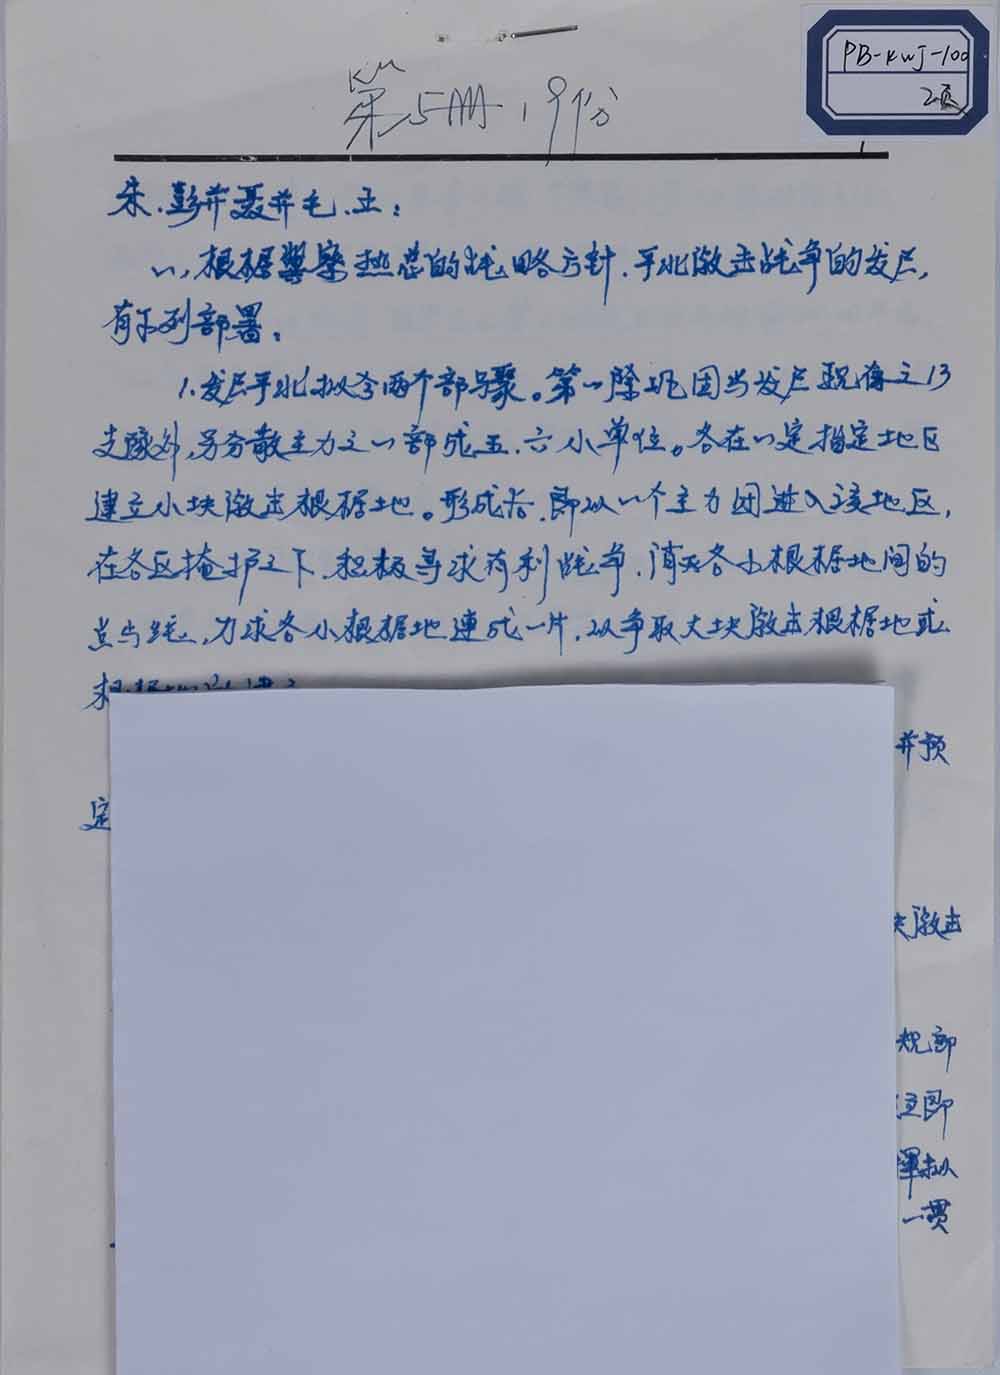 PB-KWJ-100
2页
第5册，9份
1
朱.彭并聂并毛.王：
一,根据冀察热芯的战略方针.平北激击战争的发层,
有下列部署：
1.发层平北拟今两个部骤。第一除巩因当发层现有之13
支队外,另分散主力之一部成五.六小单位。各在一定指定地区
建立小块激击根据地。形成后.即以一个主力团进入该地区,
在各区掩护之下.积极寻求有利战争.消灭各小根据地间的
点与线,力求各小根据地連成一片.以争取大块激击根据地或
根据地
并预
定
激击
规部
立即
挥拟
一贯